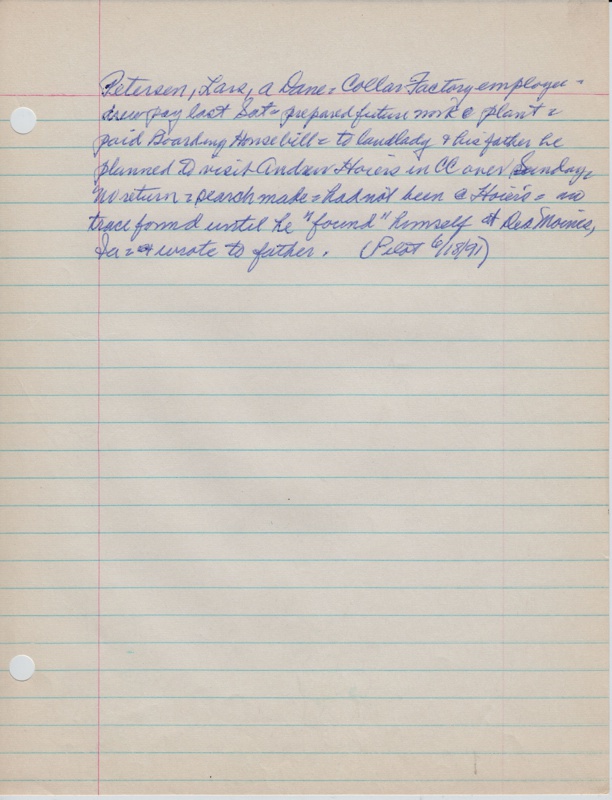 Petersen, Lars, a Dane = Collar Factory employee =
drew pay last Sat = prepared future work @ plant =
paid Boarding House bill = to landlady & his father he
planned to visit Andrew Hoiers in CC over Sunday =
no return = search made = had not been @ Hoier's = no
trace found until he "found" himself at Des Moines,
Ia = & wrote to father. (Pilot 6/18/91)